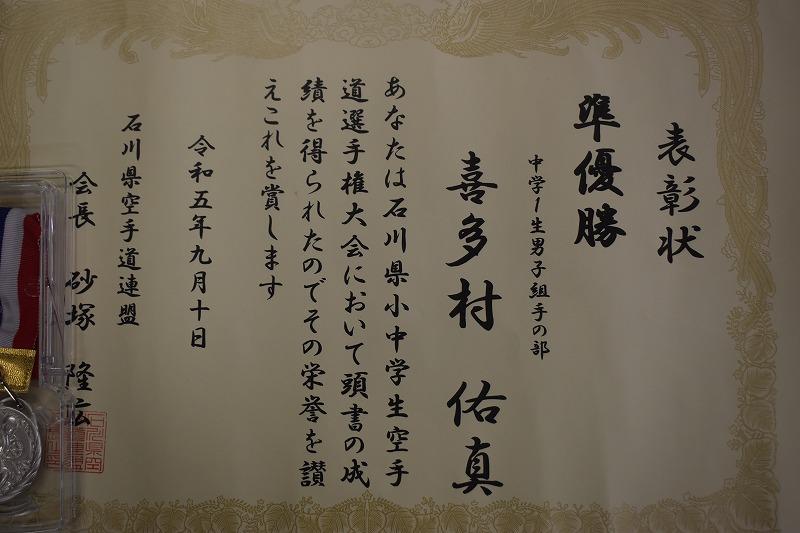 表彰状
準優勝
中学1生男子組手の部
喜多村 佑真
あなたは石川県小中学生空手
道選手権大会において頭書の成
績を得られたのでその栄誉を讃
えこれを賞します
令和五年九月十日
石川県空手道連盟
会長 砂塚 隆広